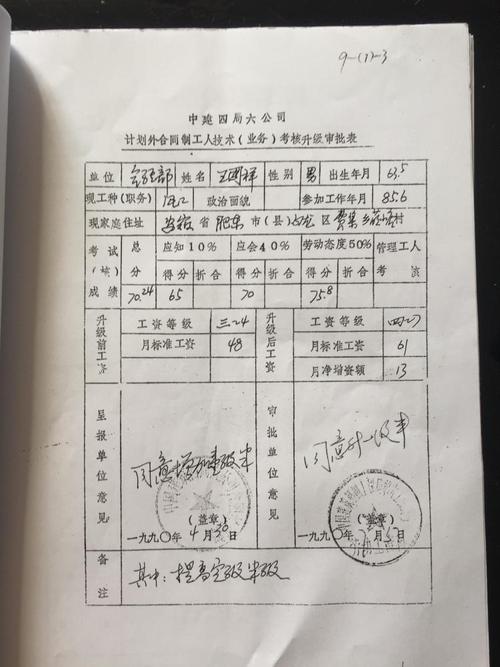 9-(1)-3
中建四局六公司
计划外合同制工人技术(业务)考核升级审批表
单位 姓名 王国祥 性别 男 出生年月 63.5
现工种(职务) 瓦工 政治面貌 参加工作年月 85.6
现家庭住址 安徽 省 肥东 市(县) 区 乡 村
考试(核)成绩 总分 应知10% 应会40% 劳动态度50% 管理工人考核
得分 折合 得分 折合 得分 折合
70.24 65 70 75.8
升级前工资 工资等级 三24 升级后工资 工资等级
月标准工资 48 月标准工资 61
月净增资额 13
呈报单位意见 审批单位意见
同意 同意升一级半
(盖章) (盖章)
一九九〇年4月30日 一九九〇年 月 日
备注 其中:提高定级半级